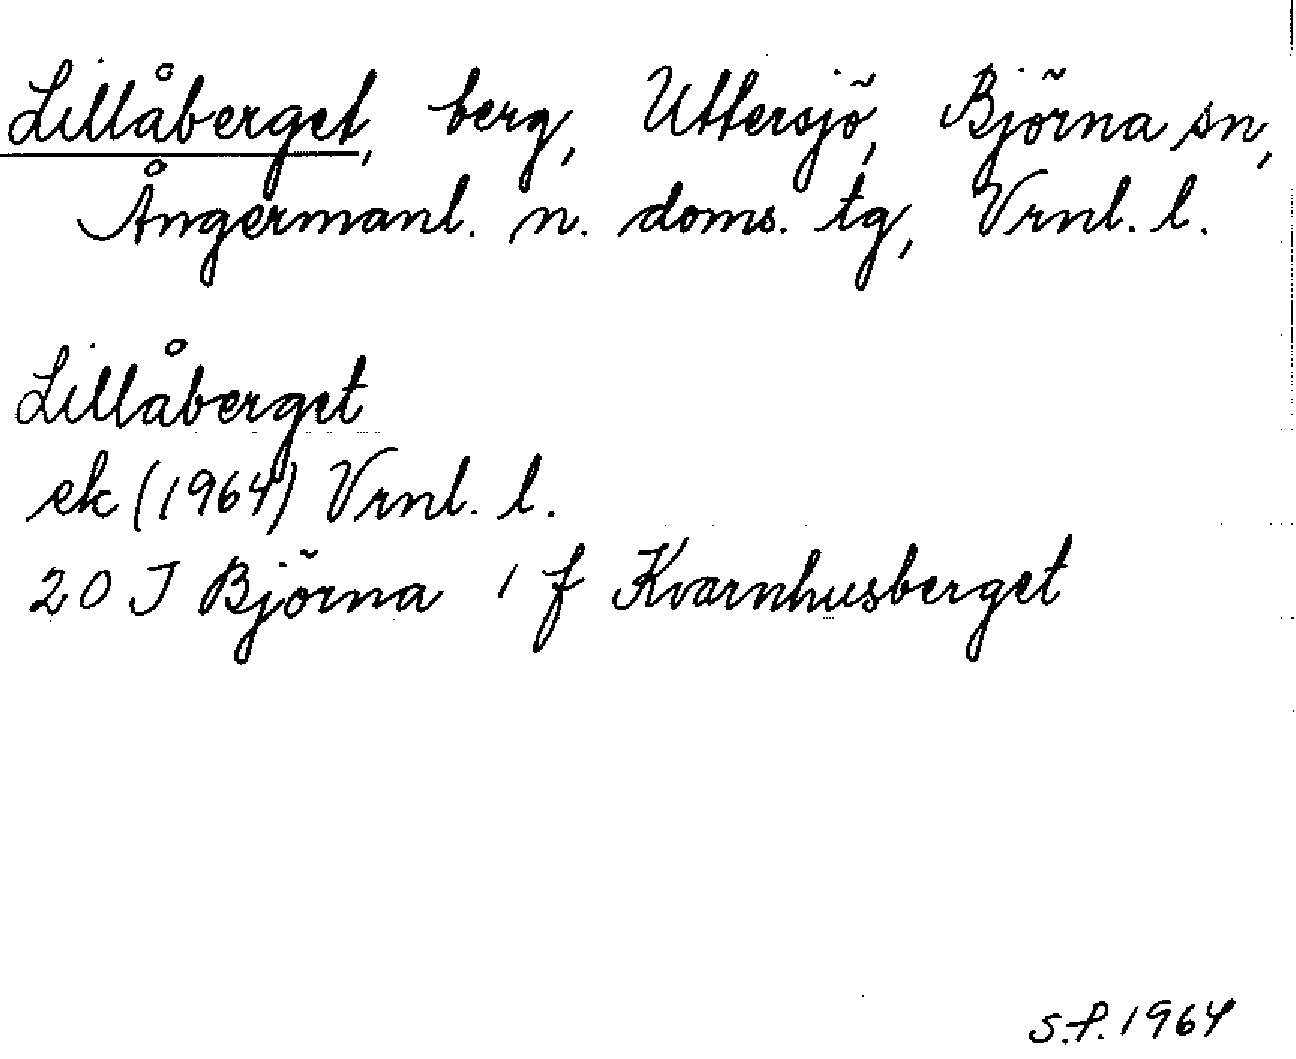 Lillåberget, berg, Uttersjö, Björna sn,
Ångermanl. n. doms. tg, Vrnl. l.
Lillåberget
ek (1964) Vrnl. l.
20 J Björna 1 f Kvarnhusberget
S.f. 1964